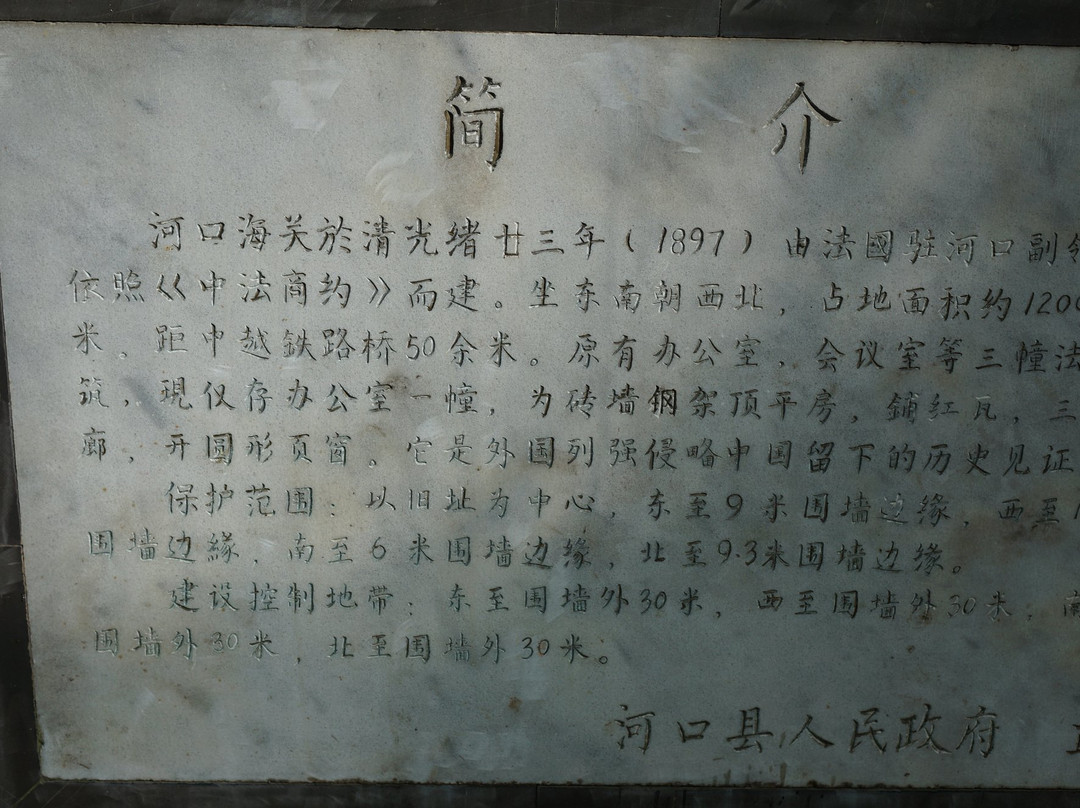 简介
河口海关於清光绪廿三年（1897）由法國驻河口副
依照《中法商约》而建。坐东南朝西北，占地面积约1200
米。距中越鉄路桥50余米。原有办公室，会议室等三幢法
筑，現仅存办公室一幢，为砖墙钢架顶平房，鋪红瓦，三
廊，开圆形页窗。它是外国列强侵略中国留下的历史见证
保护范围：以旧址为中心，东至9米围墙边缘，西至
围墙边緣，南至6米围墙边缘，北至9.3米围墙边缘。
建设控制地带：东至围墙外30米，西至围墙外30米，南
围墙外30米，北至围墙外30米。
河口县人民政府